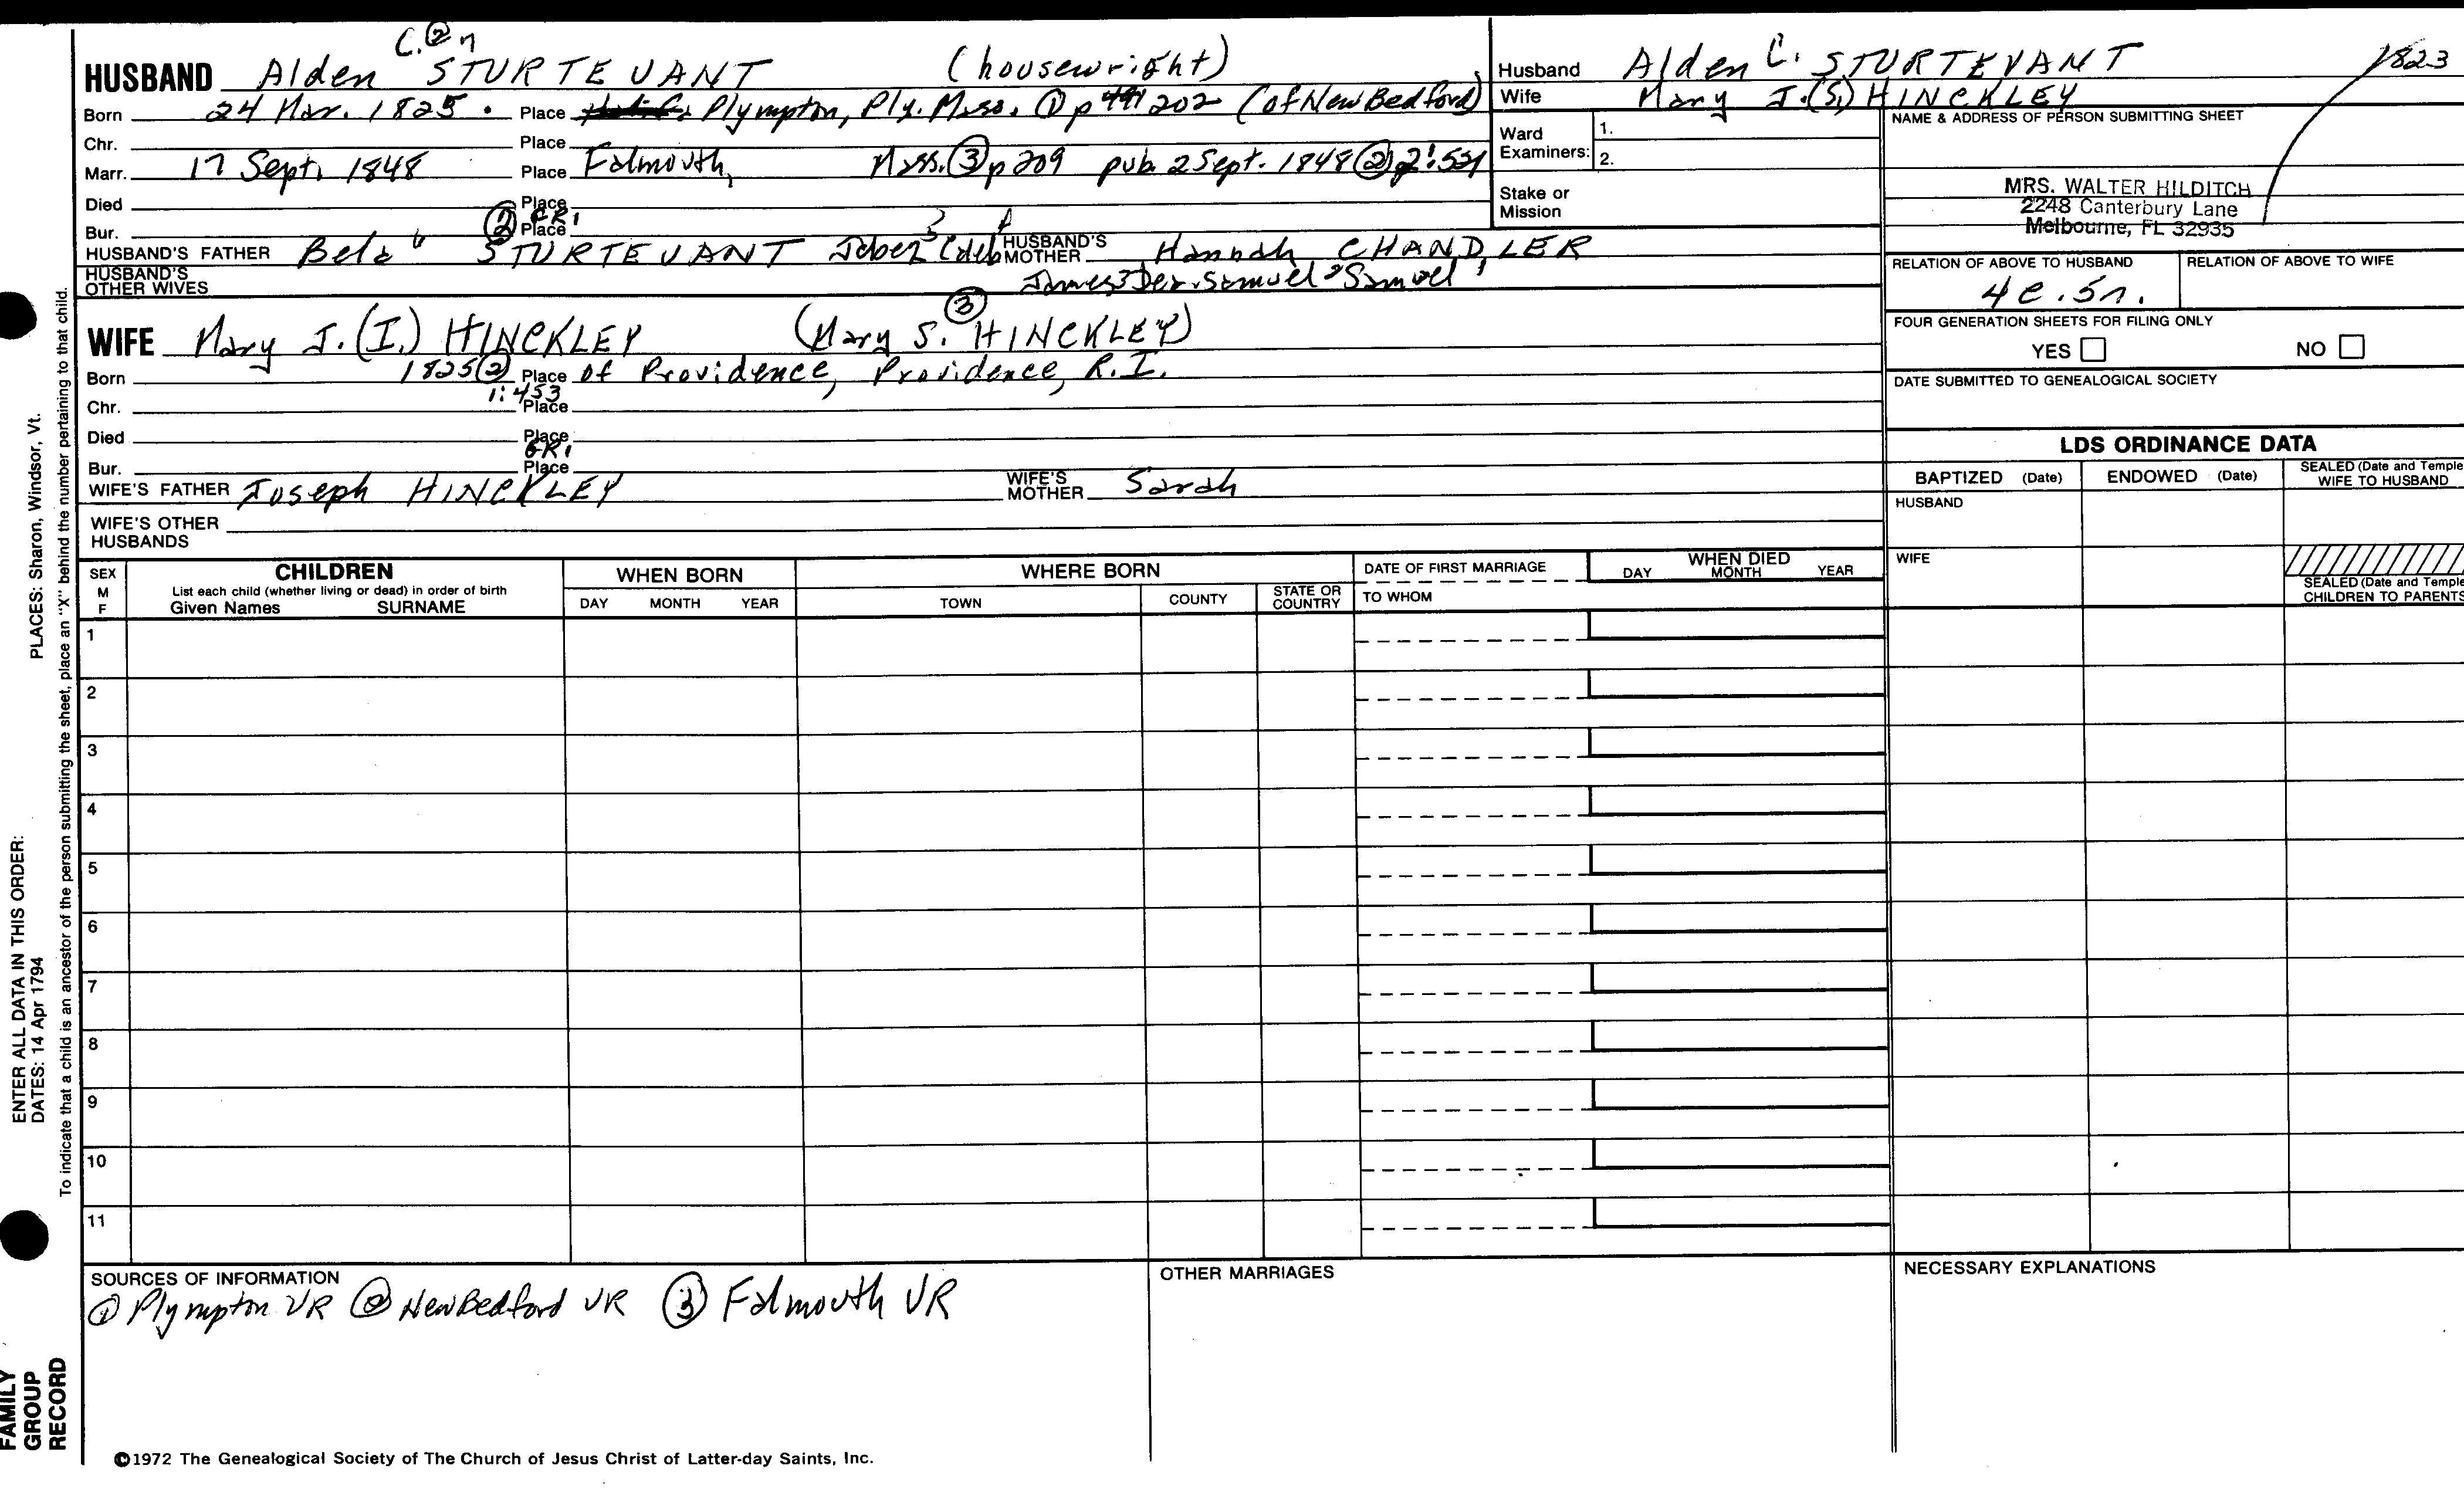 C. ② 7
HUSBAND Alden STURTEVANT (housewright)
Born 24 Mar. 1825 Place Plympton, Ply. Mass. ① p 202 (of New Bedford)
Chr. Place
Marr. 17 Sept. 1848 Place Falmouth, Mass. ③ p 209 pub. 2 Sept. 1848 ② 2:531
Died Place
② GR1
Bur. Place
HUSBAND'S FATHER Bela 6 STURTEVANT Jabez 5 Caleb 4 HUSBAND'S MOTHER Hannah CHANDLER
HUSBAND'S OTHER WIVES James 3 Samuel 2 Samuel 1
③
WIFE Mary J. (I.) HINCKLEY (Mary S. HINCKLEY)
Born 1825 ② Place of Providence, Providence, R.I.
1:453
Chr. Place
Died Place
GR1
Bur. Place
WIFE'S FATHER Joseph HINCKLEY WIFE'S MOTHER Sarah
WIFE'S OTHER HUSBANDS
Husband Alden C. STURTEVANT 1823
Wife Mary J. (S.) HINCKLEY
Ward Examiners: 1.
2.
Stake or Mission
NAME & ADDRESS OF PERSON SUBMITTING SHEET
MRS. WALTER HILDITCH
2248 Canterbury Lane
Melbourne, FL 32935
RELATION OF ABOVE TO HUSBAND RELATION OF ABOVE TO WIFE
4c. 5r.
FOUR GENERATION SHEETS FOR FILING ONLY
YES NO
DATE SUBMITTED TO GENEALOGICAL SOCIETY
LDS ORDINANCE DATA
BAPTIZED (Date) ENDOWED (Date) SEALED (Date and Temple) WIFE TO HUSBAND
HUSBAND
WIFE
SEALED (Date and Temple) CHILDREN TO PARENTS
SEX M F
CHILDREN
List each child (whether living or dead) in order of birth
Given Names SURNAME
WHEN BORN
DAY MONTH YEAR
WHERE BORN
TOWN COUNTY STATE OR COUNTRY
DATE OF FIRST MARRIAGE
TO WHOM
WHEN DIED
DAY MONTH YEAR
1
2
3
4
5
6
7
8
9
10
11
SOURCES OF INFORMATION
① Plympton VR ② New Bedford VR ③ Falmouth VR
OTHER MARRIAGES
NECESSARY EXPLANATIONS
©1972 The Genealogical Society of The Church of Jesus Christ of Latter-day Saints, Inc.
PLACES: Sharon, Windsor, Vt.
ENTER ALL DATA IN THIS ORDER:
DATES: 14 Apr 1794
To indicate that a child is an ancestor of the person submitting the sheet, place an "X" behind the number pertaining to that child.
FAMILY
GROUP
RECORD